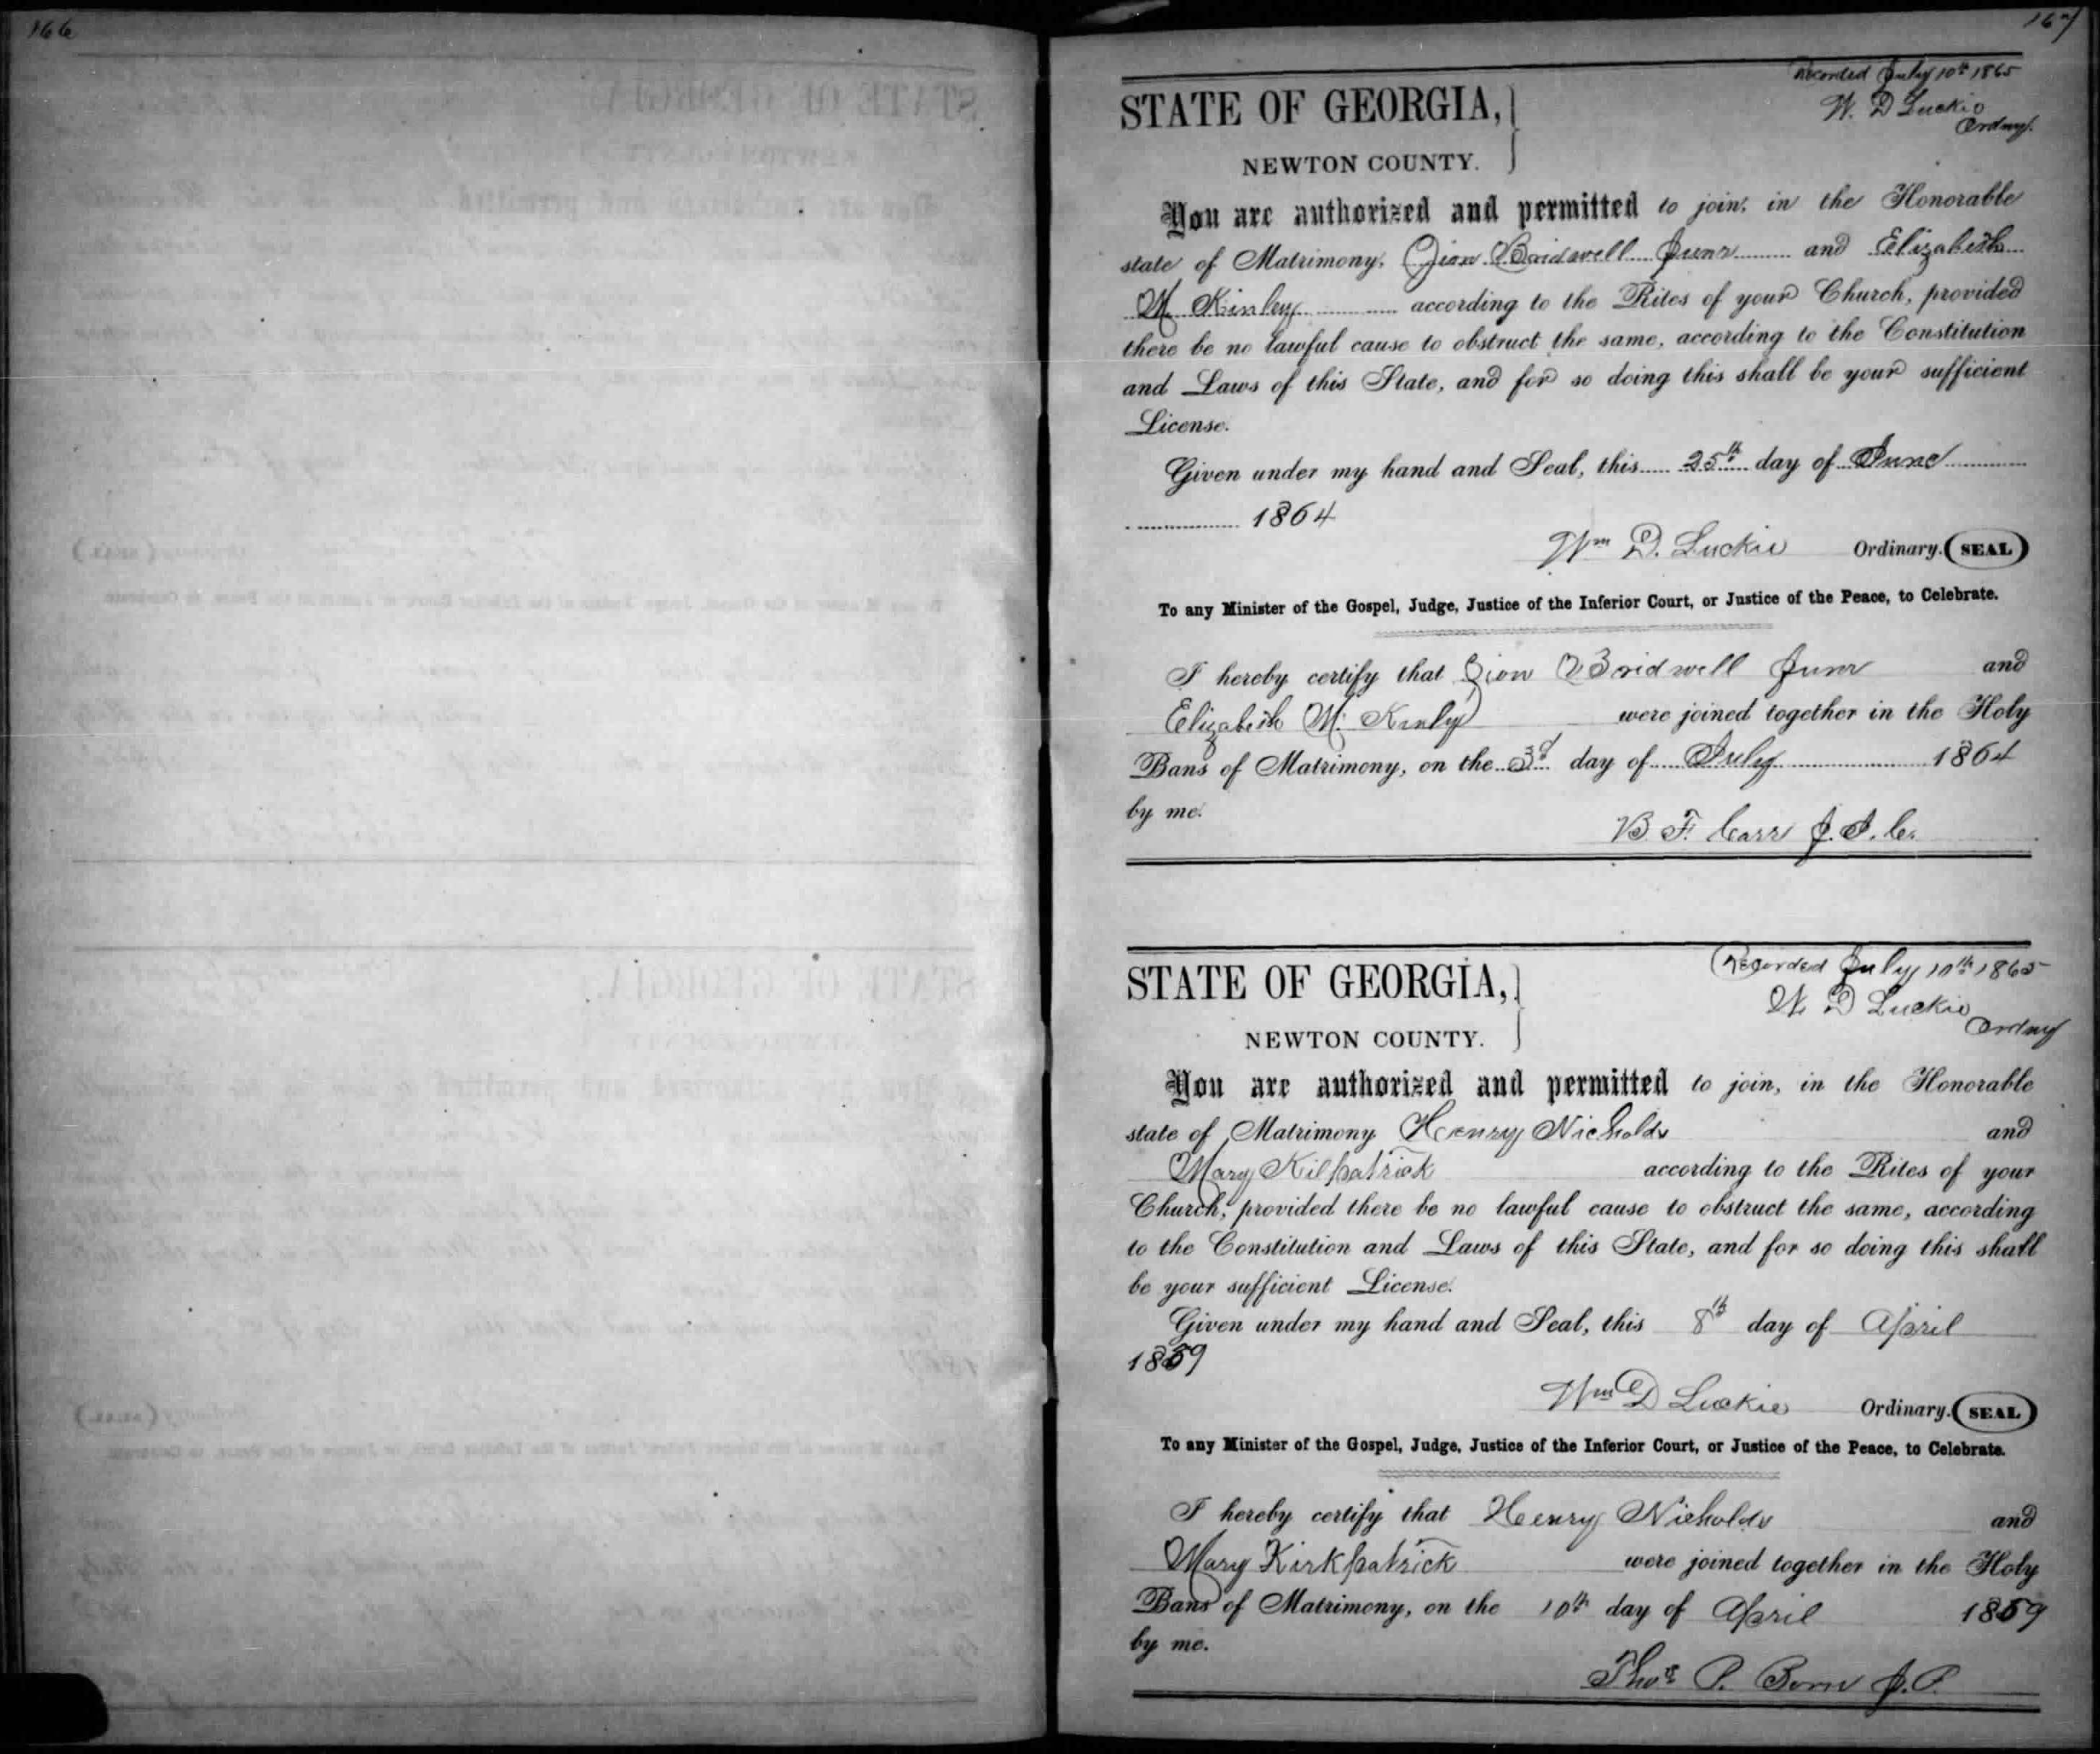 166
167
Recorded July 10th 1865
W. D Luckie
Ordny.
STATE OF GEORGIA,
NEWTON COUNTY.
You are authorized and permitted to join, in the Honorable
state of Matrimony, Zion Bridwell Junr and Elizabeth
M. Kinley according to the Rites of your Church, provided
there be no lawful cause to obstruct the same, according to the Constitution
and Laws of this State, and for so doing this shall be your sufficient
License.
Given under my hand and Seal, this 25th day of June
1864
Wm D. Luckie Ordinary. (SEAL)
To any Minister of the Gospel, Judge, Justice of the Inferior Court, or Justice of the Peace, to Celebrate.
I hereby certify that Zion Bridwell Junr and
Elizabeth M. Kinly were joined together in the Holy
Bans of Matrimony, on the 3d day of July 1864
by me.
B. F. Carr J. I. C.
Recorded July 10th 1865
W. D Luckie
Ordny
STATE OF GEORGIA,
NEWTON COUNTY.
You are authorized and permitted to join, in the Honorable
state of Matrimony Henry Nicholds and
Mary Kilpatrick according to the Rites of your
Church, provided there be no lawful cause to obstruct the same, according
to the Constitution and Laws of this State, and for so doing this shall
be your sufficient License.
Given under my hand and Seal, this 8th day of April
1859
Wm D Luckie Ordinary. (SEAL)
To any Minister of the Gospel, Judge, Justice of the Inferior Court, or Justice of the Peace, to Celebrate.
I hereby certify that Henry Nicholds and
Mary Kirkpatrick were joined together in the Holy
Bans of Matrimony, on the 10th day of April 1859
by me.
Thos P. Born J. P.